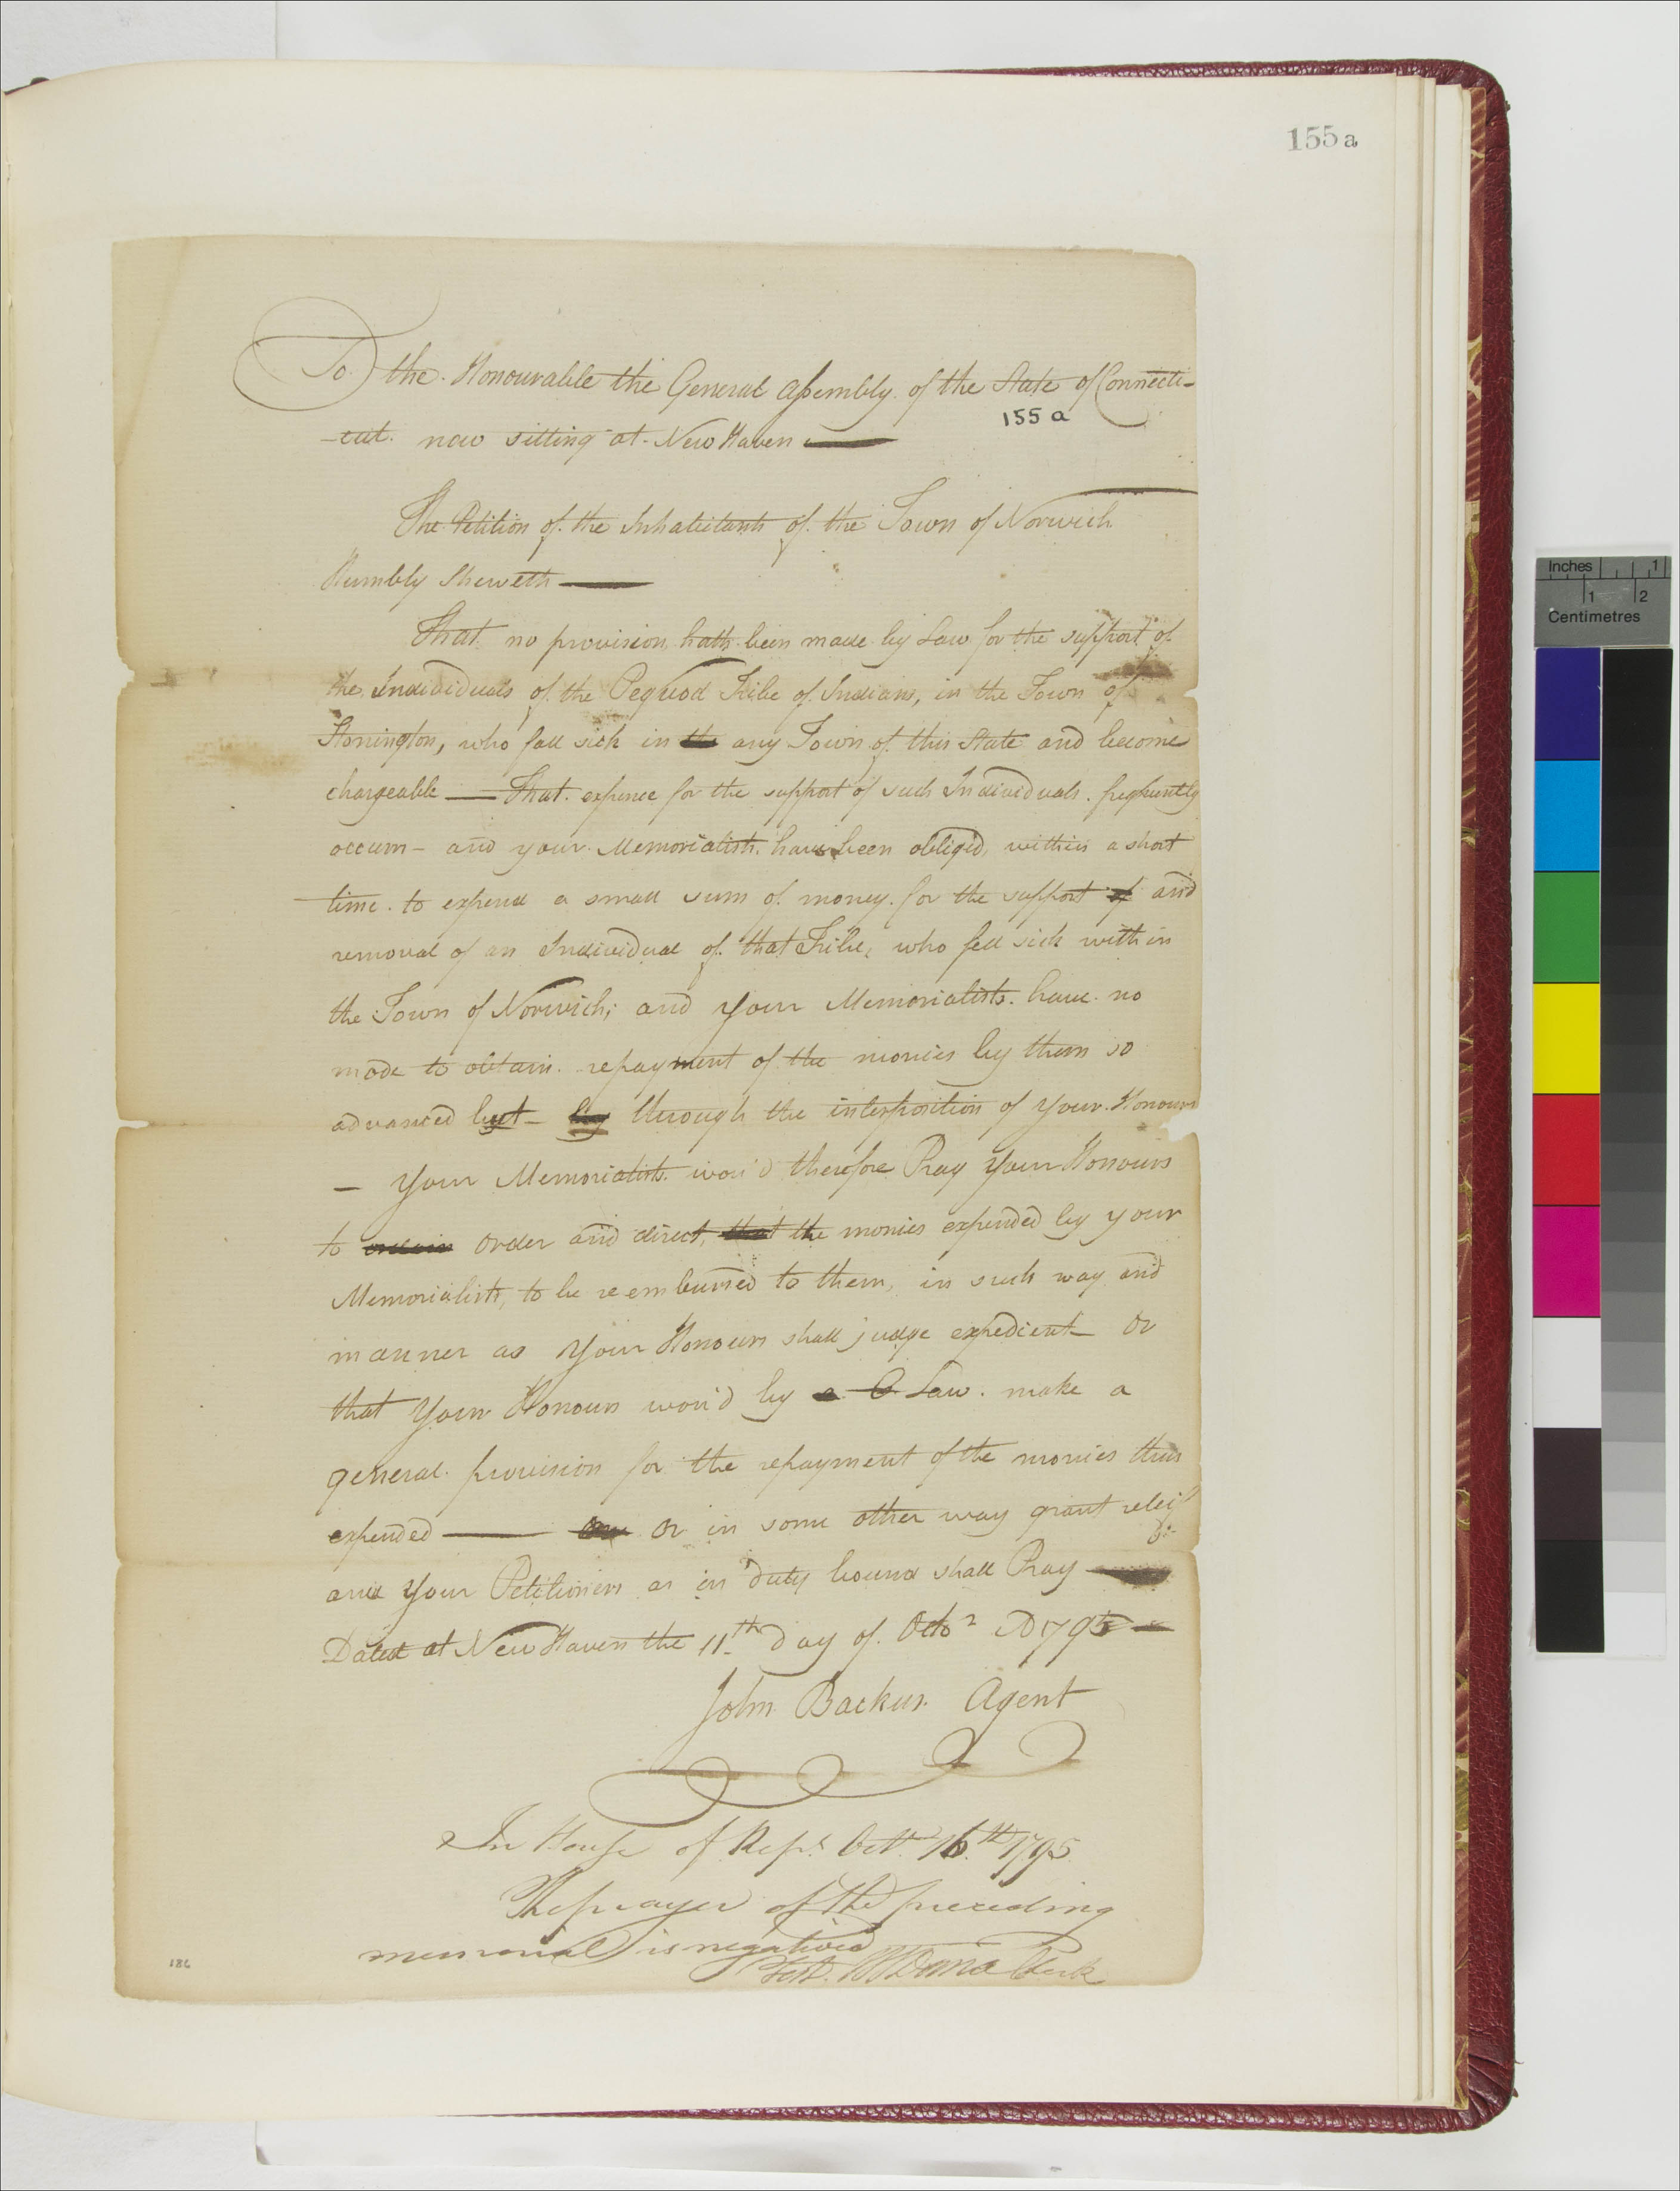 155a
To the Honourable the General Assembly of the State of Connecti-
155 a
-cut now sitting at New Haven
The Petition of the Inhabitants of the Town of Norwich
Humbly Sheweth
That no provision hath been made by Law for the support of
the Individuals of the Pequod Tribe of Indians, in the Town of
Stonington, who fall sick in the any Town of this State and become
chargeable — That expence for the support of such Individuals frequently
occurrs – and your Memorialists have been obliged, within a short
time to expend a small sum of money for the support of and
removal of an Individual of that Tribe, who fell sick within
the Town of Norwich; and your Memorialists have no
mode to obtain repayment of the monies by them so
advanced but – by through the interposition of your Honours
– Your Memorialists wou'd therefore Pray Your Honours
to order and direct, that the monies expended by your
Memorialists, to be reembursed to them, in such way and
manner as Your Honours shall judge expedient – Or
that Your Honours wou'd by a Law make a
general provision for the repayment of the monies thus
expended — Or in some other way grant releif
and Your Petitioners as in duty bound shall Pray
Dated at New Haven the 11th day of Octor AD 1795
John Backus Agent
In House of Reps Octr 16th 1795
The prayer of the preceding
memorial is negatived
Test. Clerk
186
Inches 1
1 2
Centimetres